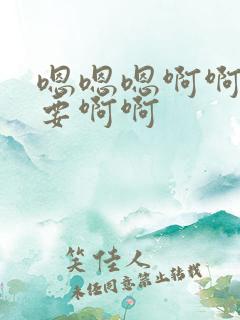 嗯嗯嗯啊啊
要啊啊
笑佳人
未经同意禁止转载